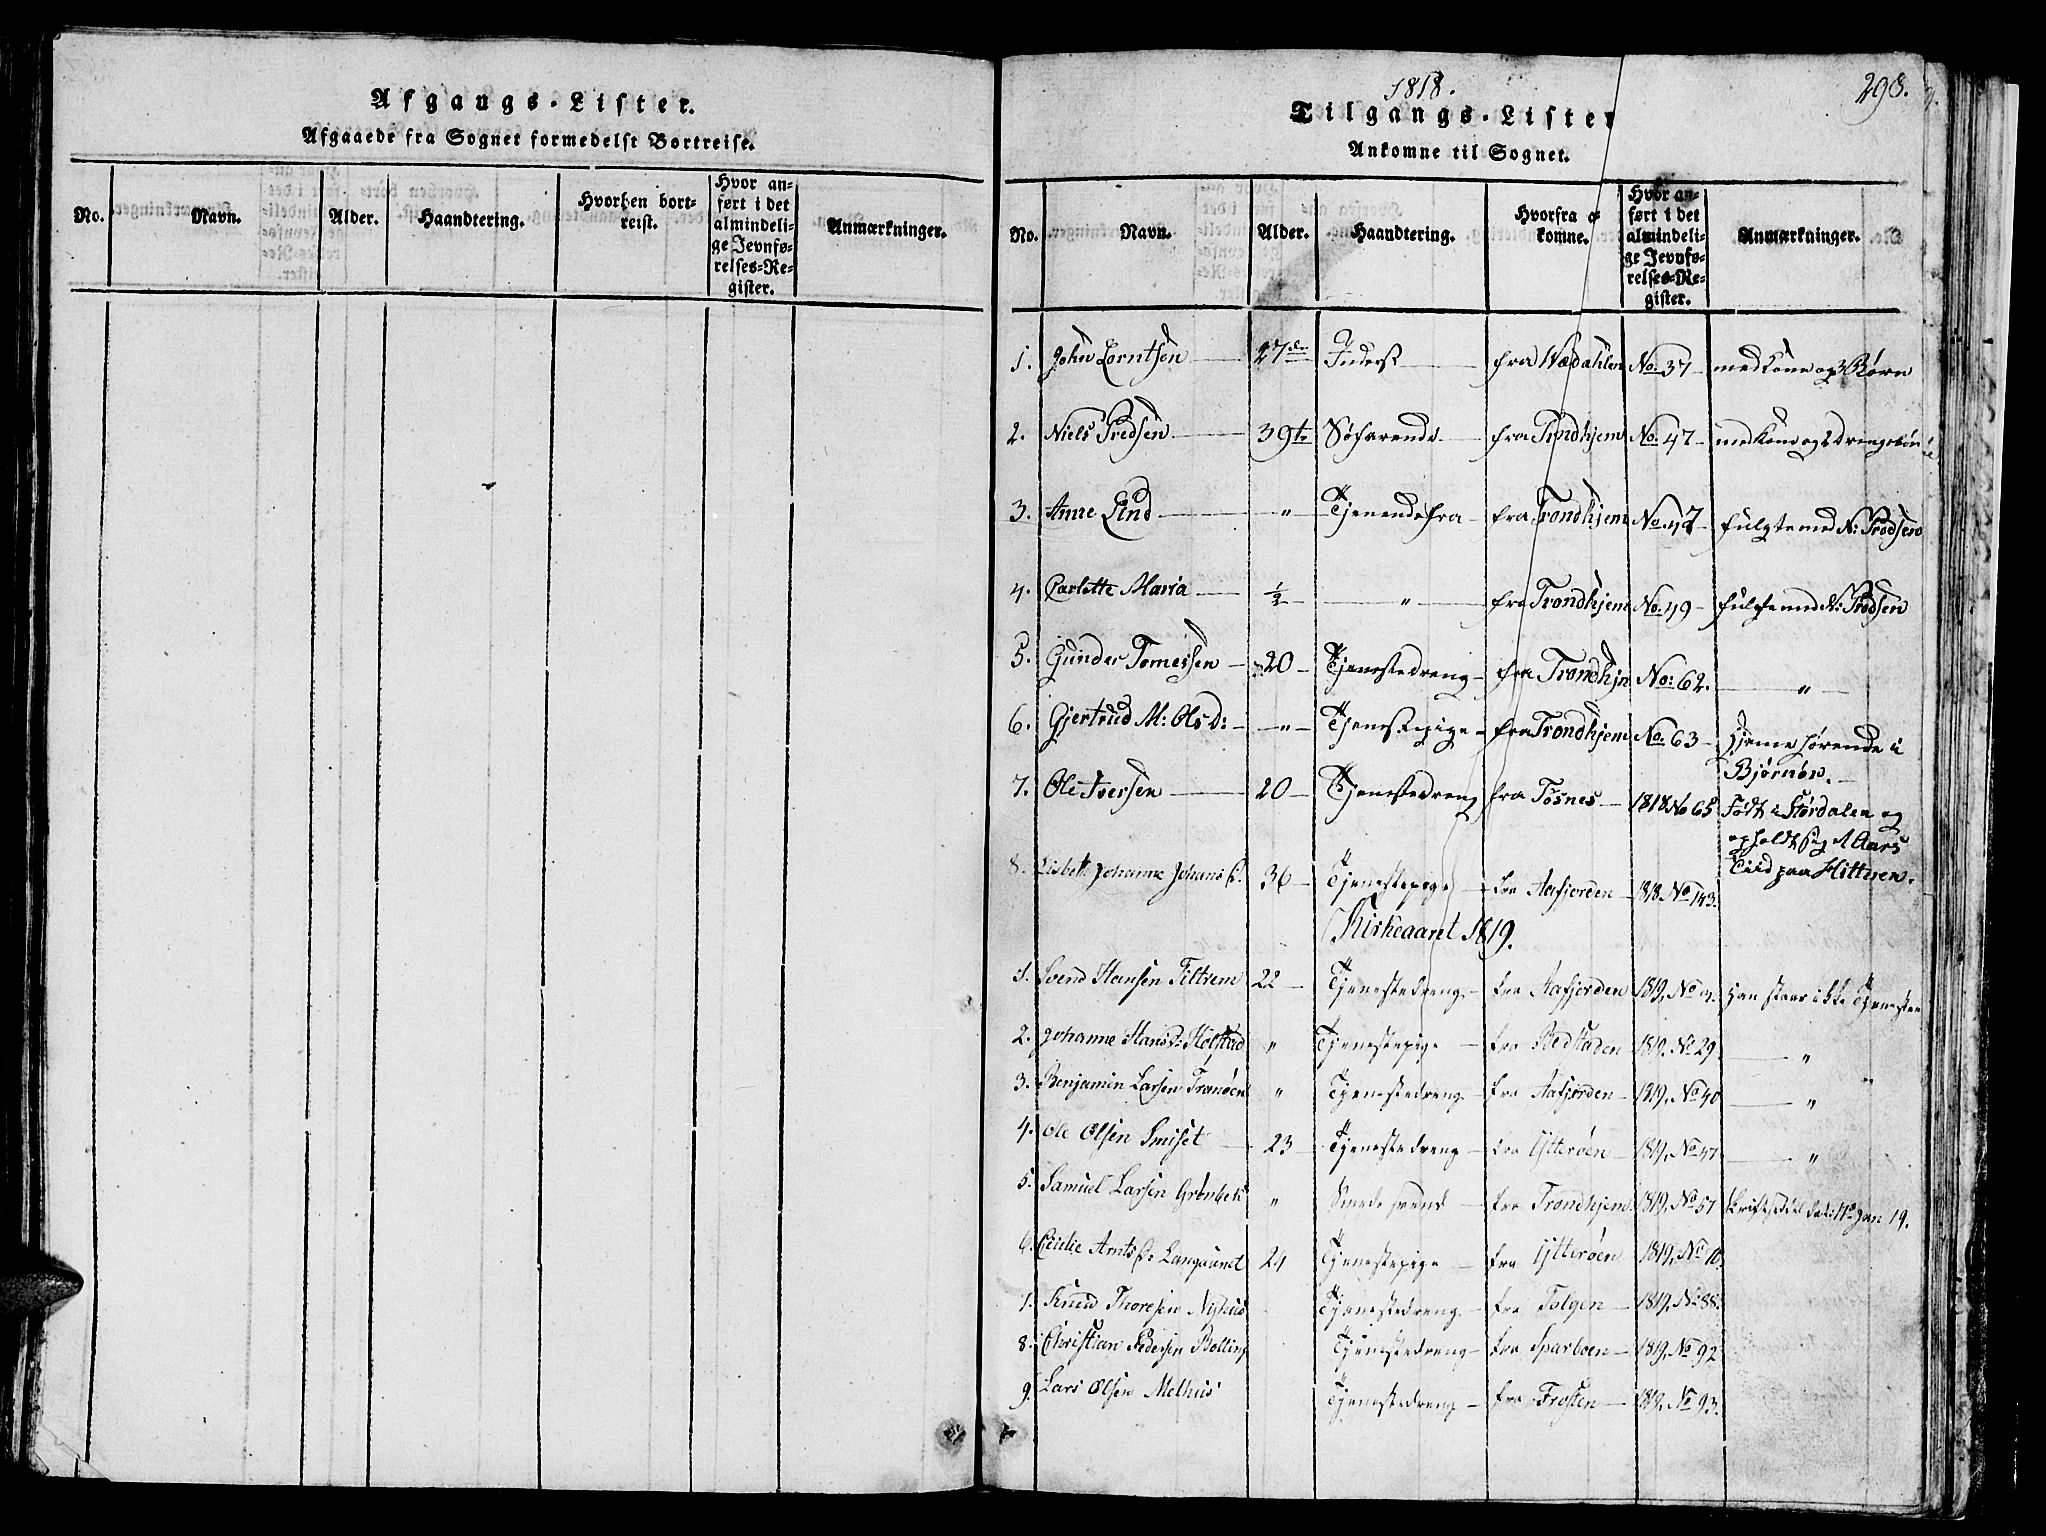 Afgangs-Lister.
Afgaaede fra Sognet formedelst Bortreise.
No. Navn. Alder. Haandtering. Hvorhen bortreist. Hvor anført i det almindelige Jevnførelses-Register. Anmærkninger.
1818.
298.
Tilgangs-Lister
Ankomne til Sognet.
No. Navn. Alder. Haandtering. Hvorfra komne. Hvor anført i det almindelige Jevnførelses-Register. Anmærkninger.
1. John Lorntsen 27 Inderst fra Wædahlen No. 37 med Kone og 3 Børn
2. Niels Tredsen 39 Søfarende fra Trondhjem No. 47 med Kone og 2
3. Anne Lind " Tjenende fra Trondhjem No. 47 fulgte med N: Trodsen
4. Carlotte Maria ½ " fra Trondhjem No. 49 fulgte med N: Trodsen
5. Gunder Tomessen 20 Tjenestedreng fra Trondhjn No: 62. "
6. Gjertrud M: Ols D: " Tjenestepige fra Trondhjem No. 63 hjemehørende i
Bjørnør.
7. Ole Iversen 20 Tjenestedreng fra Fosnes 1818 No 65 Født i Størdalen og
opholdt sig 1 Aars
Tiid paa Hitteren.
8. Lisbeth Johanne Johans D. 36 Tjenestepige fra Aafjorden 1818 No 143.
Kirkeaaret 1819.
1. Svend Hansen Tiltrem 22 Tjenestedreng fra Aafjorden 1819, No han staar i Tjenesten
2. Johanne Hans D: Holstad " Tjenestepige fra 1819, No 29 "
3. Benjamin Larsen Tranøen " Tjenestedreng fra Aafjorden 1819, No 40 "
4. Ole Olsen Smiset 23 Tjenestedreng fra Ytterøen 1819, No 47 "
5. Samuel Larsen Grønbek " Smede svend fra Trondhjem 1819, No 57 Skriftseddel dat: 11te Jan 19.
6. Cicilie Arnts D: Langsund 24 Tjenestepige fra Ytterøen 1819, No
7. Knud Thoresen Nyhus Tjenestedreng fra Tolgen 1819, No 88.
8. Christian Pedersen Bolling Tjenestedreng fra Sparboen 1819, No 92
9. Lars Olsen Melhus Tjenestedreng fra Frosten 1819, No 93.